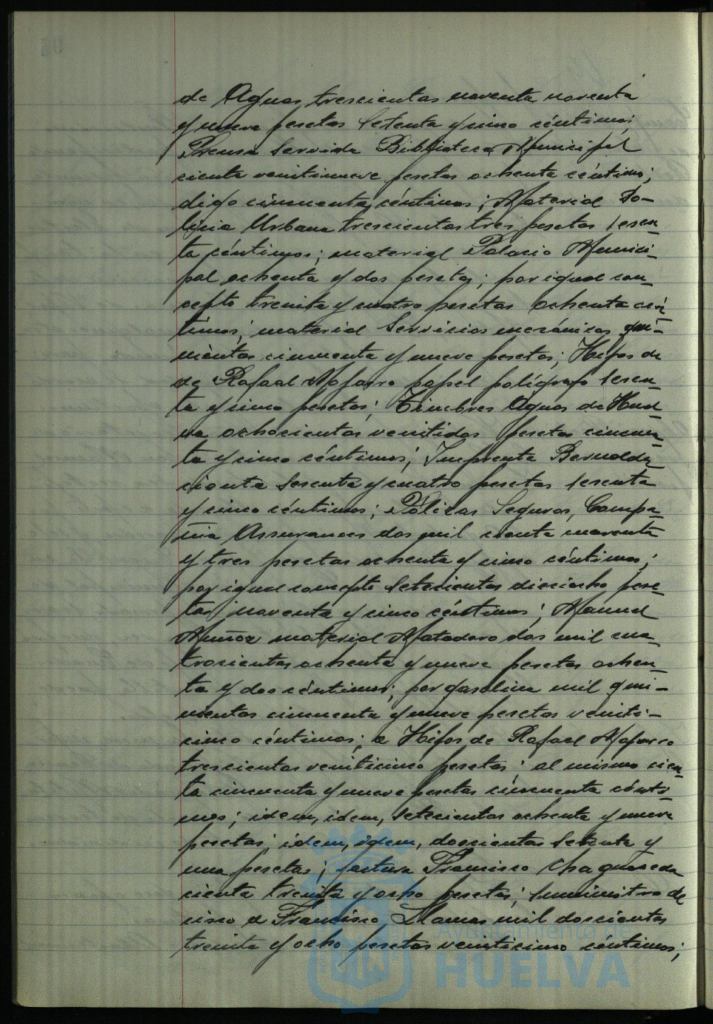 de Aguas, trescientas noventa noventa
y nueve pesetas setenta y cinco céntimos;
Prensa servida Biblioteca Municipal
ciento veintinueve pesetas ochenta céntimos;
digo cincuenta céntimos; Material Po-
licia Urbana trescientas tres pesetas sesen-
ta céntimos; material Palacio Munici-
pal ochenta y dos pesetas; por igual con-
cepto treinta y cuatro pesetas ochenta cén-
timos; material Servicios mecánicos qui-
nientas cincuenta y nueve pesetas; Hijos de
de Rafael Mojarro papel polígrafo sesen-
ta y cinco pesetas; Timbres Aguas de Huel-
va ochocientas veintidos pesetas cincuen-
ta y cinco céntimos; Imprenta
ciento sesenta y cuatro pesetas sesenta
y cinco céntimos; Pólizas Seguros, Compa-
ñia Assurances dos mil ciento noventa
y tres pesetas ochenta y cinco céntimos;
por igual concepto setecientas dieciocho pese-
tas noventa y cinco céntimos; Manuel
Muñoz material Matadero dos mil cua-
trocientas ochenta y nueve pesetas ochen-
ta y dos céntimos; por gasolina mil qui-
nientas cincuenta y nueve pesetas veinti-
cinco céntimos; a Hijos de Rafael Mojarro
trescientas veinticinco pesetas; al mismo cien-
to cincuenta y nueve pesetas cincuenta cénti-
mos; idem, idem, setecientas ochenta y nueve
pesetas; idem, idem, doscientas setenta y
una pesetas; factura Francisco
ciento treinta y ocho pesetas; suministro de
cisco a Francisco Llamas mil doscientas
treinta y ocho pesetas veinticinco céntimos;
Ayuntamiento de
HUELVA